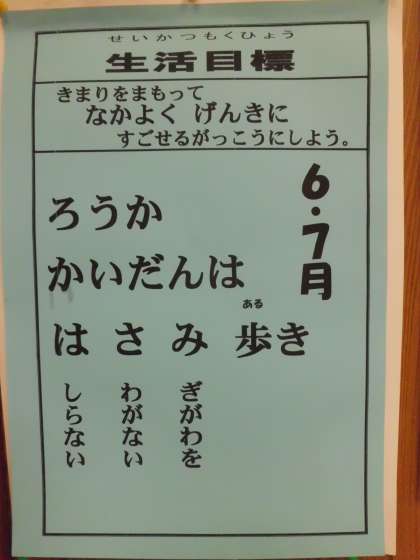 せいかつもくひょう
生活目標
きまりをまもって
なかよく げんきに
すごせるがっこうにしよう。
6・7月
ろうか
かいだんは
ある
はさみ歩き
ぎがわを
わがない
しらない